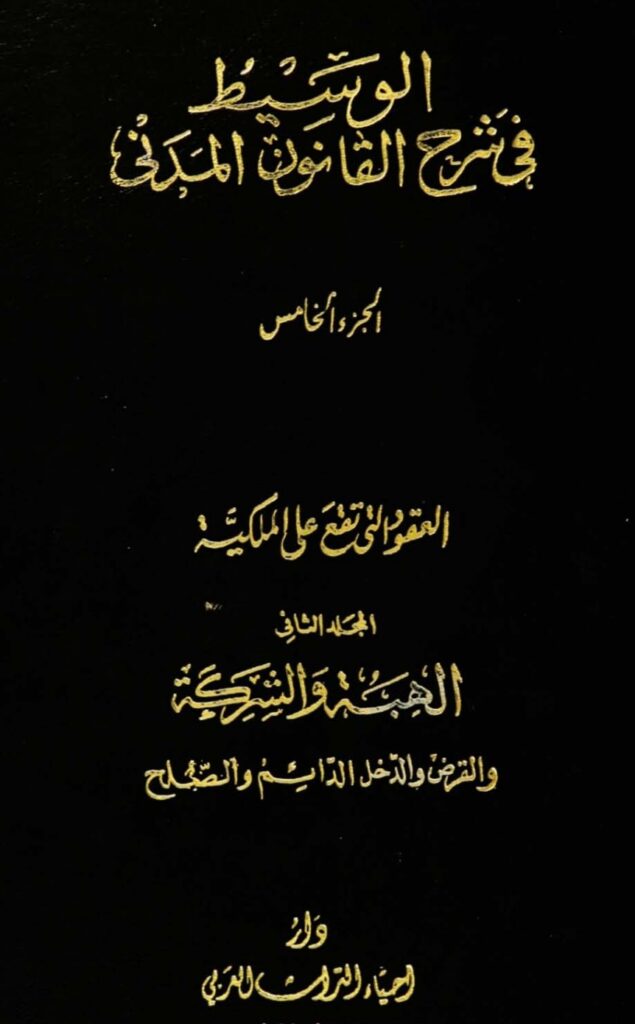 الوسيط
في شرح القانون المدني
الجزء الخامس
العقود التي تقع على الملكية
المجلد الثاني
الهبة والشركة
والقرض والدخل الدائم والصلح
دار
احياء التراث العربي